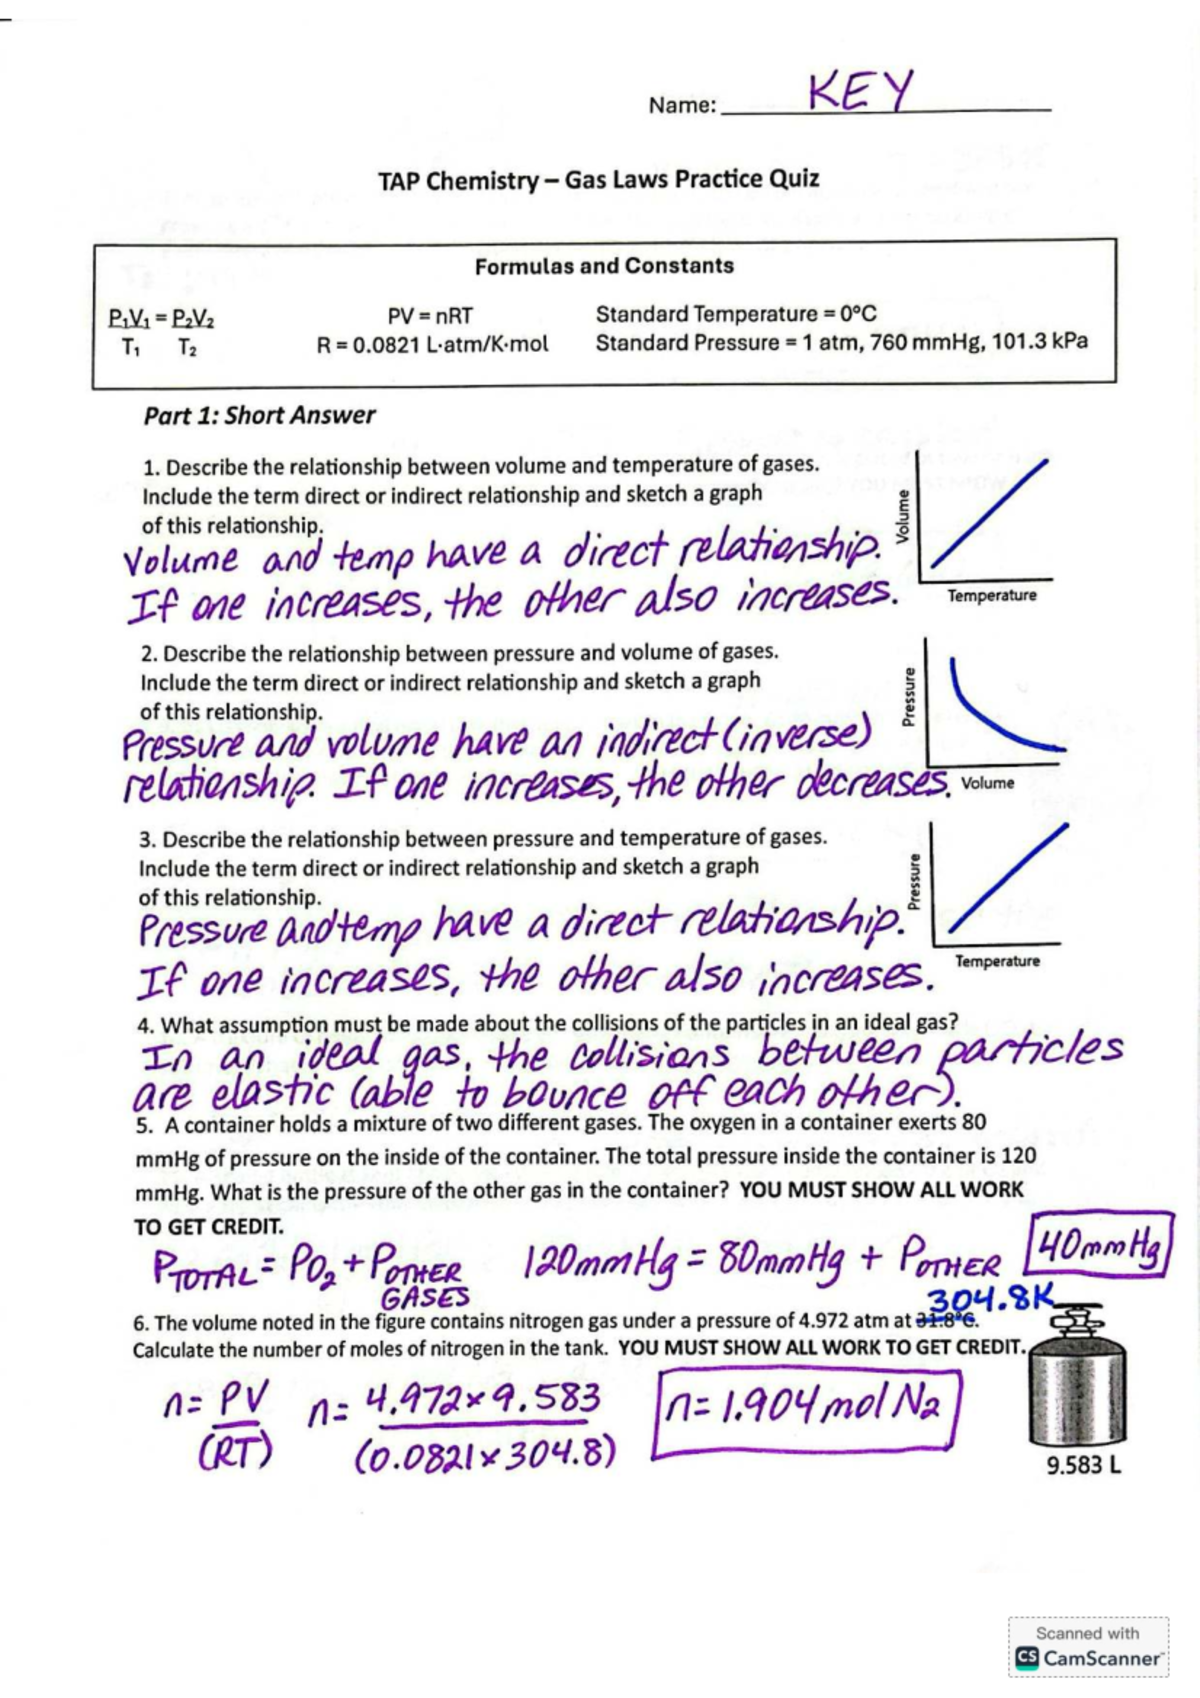 Name: KEY
TAP Chemistry – Gas Laws Practice Quiz
Formulas and Constants
P₁V₁ = P₂V₂ PV = nRT Standard Temperature = 0°C
T₁ T₂ R = 0.0821 L·atm/K·mol Standard Pressure = 1 atm, 760 mmHg, 101.3 kPa
Part 1: Short Answer
1. Describe the relationship between volume and temperature of gases.
Include the term direct or indirect relationship and sketch a graph
of this relationship.
Volume and temp have a direct relationship.
If one increases, the other also increases.
Volume
Temperature
2. Describe the relationship between pressure and volume of gases.
Include the term direct or indirect relationship and sketch a graph
of this relationship.
Pressure and volume have an indirect (inverse)
relationship. If one increases, the other decreases.
Pressure
Volume
3. Describe the relationship between pressure and temperature of gases.
Include the term direct or indirect relationship and sketch a graph
of this relationship.
Pressure and temp have a direct relationship.
If one increases, the other also increases.
Pressure
Temperature
4. What assumption must be made about the collisions of the particles in an ideal gas?
In an ideal gas, the collisions between particles
are elastic (able to bounce off each other).
5. A container holds a mixture of two different gases. The oxygen in a container exerts 80
mmHg of pressure on the inside of the container. The total pressure inside the container is 120
mmHg. What is the pressure of the other gas in the container? YOU MUST SHOW ALL WORK
TO GET CREDIT.
PTOTAL = PO₂ + POTHER GASES 120mmHg = 80mmHg + POTHER 40mmHg
304.8K
6. The volume noted in the figure contains nitrogen gas under a pressure of 4.972 atm at 31.8°C.
Calculate the number of moles of nitrogen in the tank. YOU MUST SHOW ALL WORK TO GET CREDIT.
n= PV n= 4.972×9.583 n= 1.904 mol N₂
(RT) (0.0821×304.8)
9.583 L
Scanned with
CS CamScanner